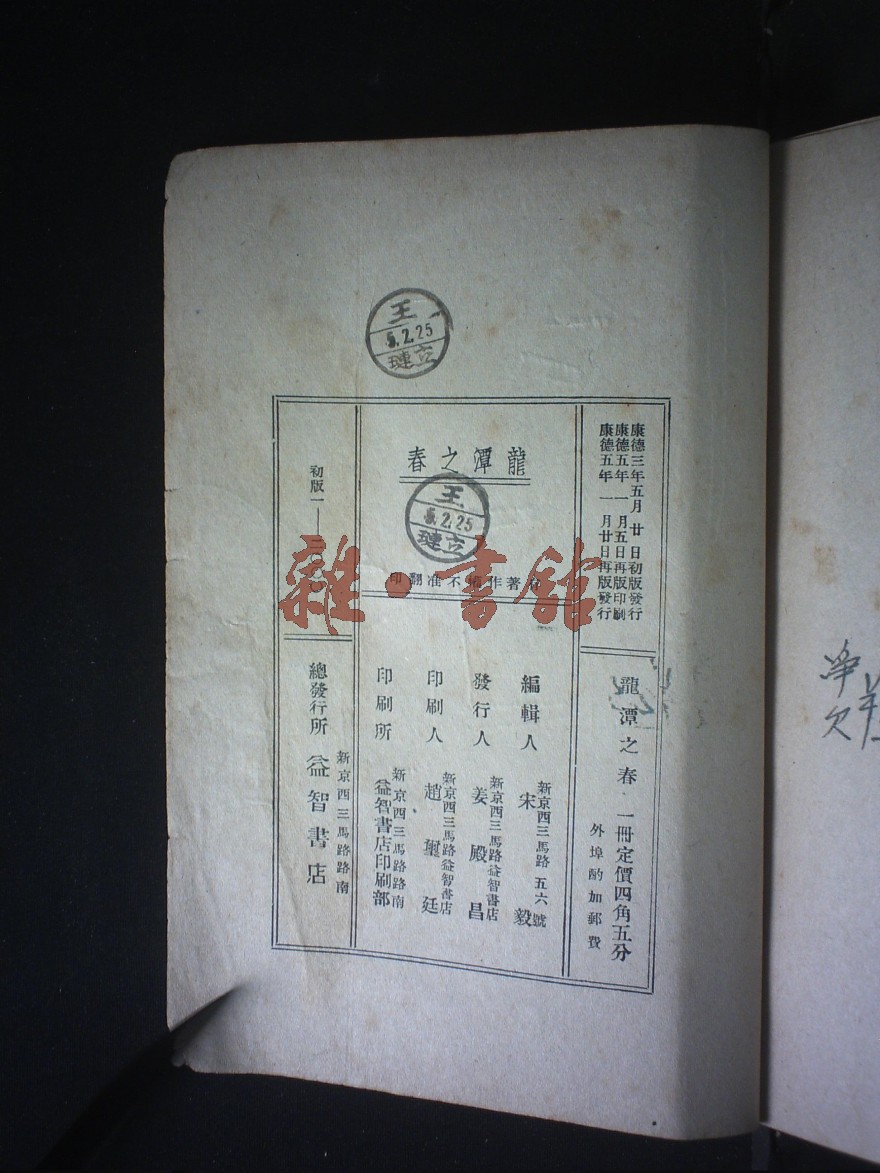 康德三年五月廿日初版發行
康德五年一月五日再版印刷
康德五年一月廿日再版發行
龍潭之春 一冊定價四角五分
外埠酌加郵費
龍潭之春
有著作權不准翻印
編輯人
新京西三馬路五六號
宋毅
發行人
新京西三馬路益智書店
姜殿昌
印刷人
新京西三馬路益智書店
趙璽廷
印刷所
新京西三馬路路南
益智書店印刷部
初版一
總發行所
新京西三馬路路南
益智書店
王
5.2.25
立璉
王
5.2.25
立璉
雜·書館